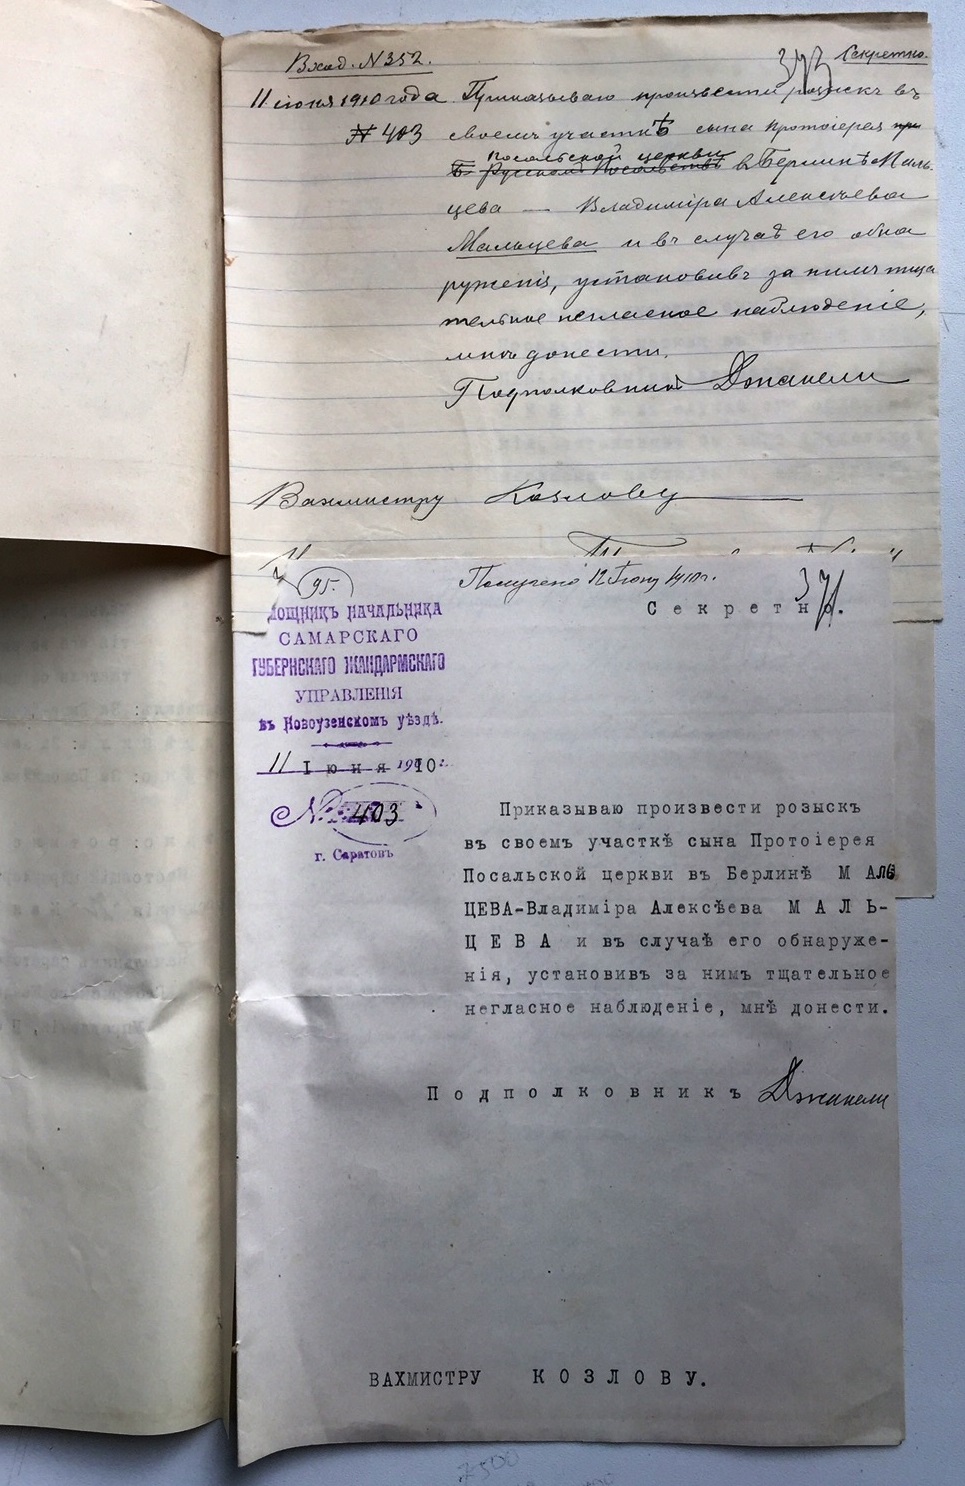 Вход. № 352.
Секретно.
11 іюня 1910 года
№ 403
Приказываю произвести розыскъ въ
своемъ участкѣ сына протоіерея при
посольской церкви
въ Берлинѣ Маль-
цева — Владиміра Алексѣева
Мальцева и въ случаѣ его обна
руженія, установивъ за нимъ тща
тельное негласное наблюденіе,
мнѣ донести.
Подполковникъ Джакели
Вахмистру Козлову
95.
Получено 12 Іюня 1910 г.
Секретно.
ПОМОЩНИКЪ НАЧАЛЬНИКА
САМАРСКАГО
ГУБЕРНСКАГО ЖАНДАРМСКАГО
УПРАВЛЕНІЯ
въ Новоузенскомъ уѣздѣ.
11 Іюня 1910 г.
№ 403
г. Саратовъ
Приказываю произвести розыскъ
въ своемъ участкѣ сына Протоіерея
Посальской церкви въ Берлинѣ МАЛЬ
ЦЕВА-Владиміра Алексѣева МАЛЬ-
ЦЕВА и въ случаѣ его обнаруже-
нія, установивъ за нимъ тщательное
негласное наблюденіе, мнѣ донести.
Подполковникъ Джакели
ВАХМИСТРУ КОЗЛОВУ.